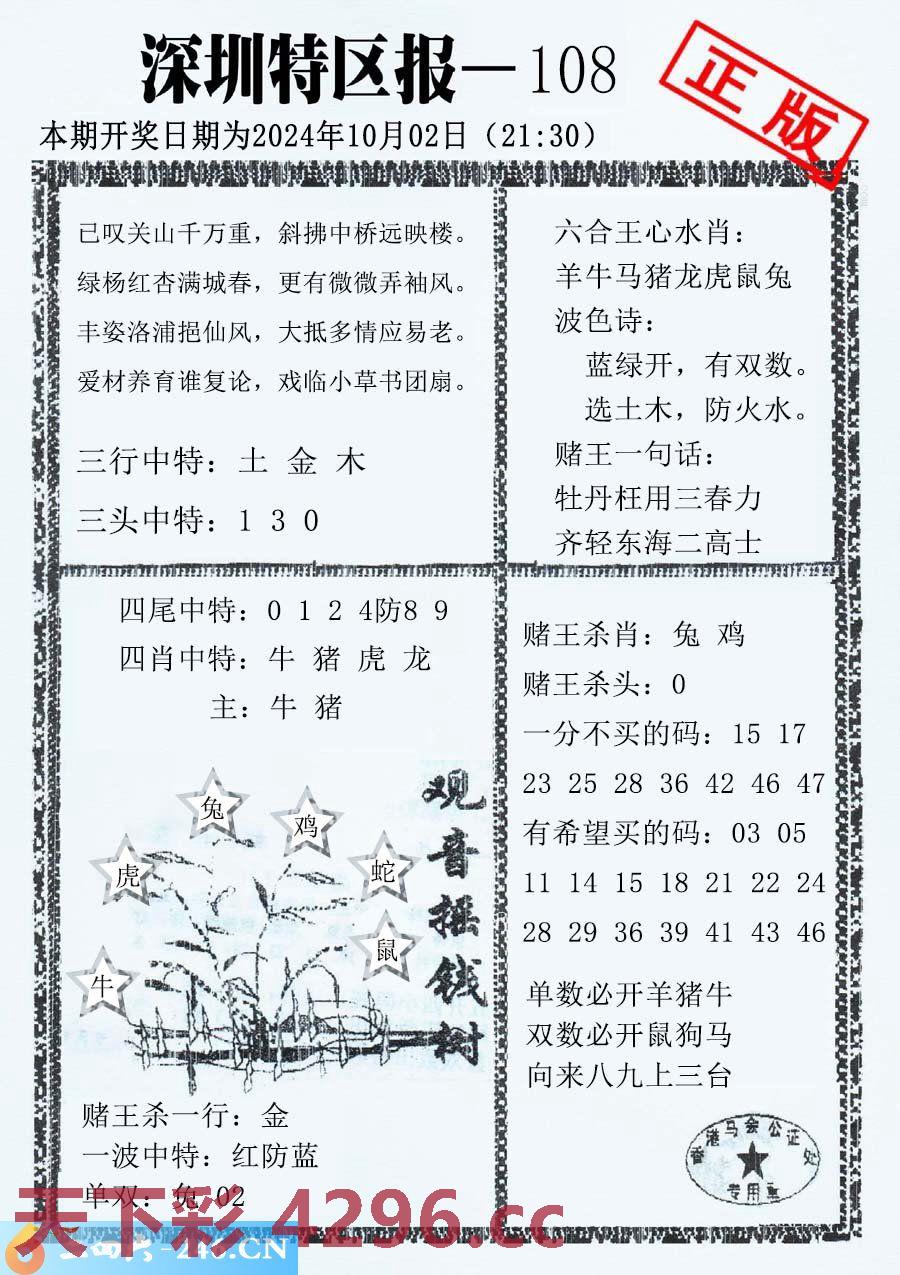 深圳特区报—108
正版
本期开奖日期为2024年10月02日（21:30）
已叹关山千万重，斜拂中桥远映楼。
绿杨红杏满城春，更有微微弄袖风。
丰姿洛浦挹仙风，大抵多情应易老。
爱材养育谁复论，戏临小草书团扇。
三行中特：土 金 木
三头中特：1 3 0
六合王心水肖：
羊牛马猪龙虎鼠兔
波色诗：
蓝绿开，有双数。
选土木，防火水。
赌王一句话：
牡丹枉用三春力
齐轻东海二高士
四尾中特：0 1 2 4防8 9
四肖中特：牛 猪 虎 龙
主：牛 猪
观音摇钱树
兔
鸡
虎
蛇
鼠
牛
赌王杀一行：金
一波中特：红防蓝
单双：兔 02
赌王杀肖：兔 鸡
赌王杀头：0
一分不买的码：15 17
23 25 28 36 42 46 47
有希望买的码：03 05
11 14 15 18 21 22 24
28 29 36 39 41 43 46
单数必开羊猪牛
双数必开鼠狗马
向来八九上三台
香港马会公证处
专用章
天下彩4296.cc